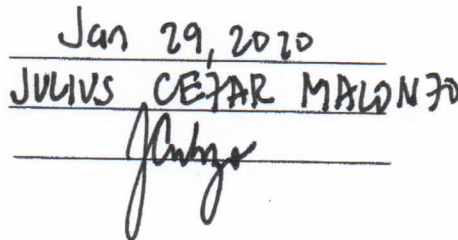 Jan 29, 2020
JULIUS CEZAR MALONZO